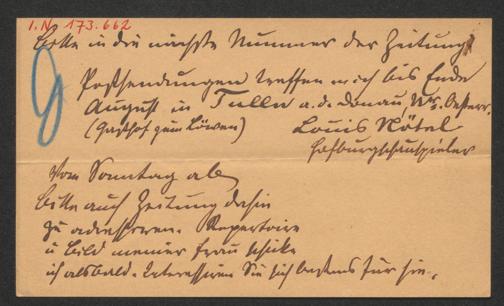 I.N. 173.662
Bitte in die nächste Nummer der Zeitung
Postsendungen treffen mich bis Ende
August in Tulln a. d. Donau, Ndr. Oesterr.
(Gasthof zum Löwen) Louis Nötel
Hofburgschauspieler
Vom Sonntag ab
bitte auch Zeitung dahin
zu adressiren. Repertoire
u Bild meiner Frau schicke
ich alsbald. Interessiren Sie sich bestens für sie.